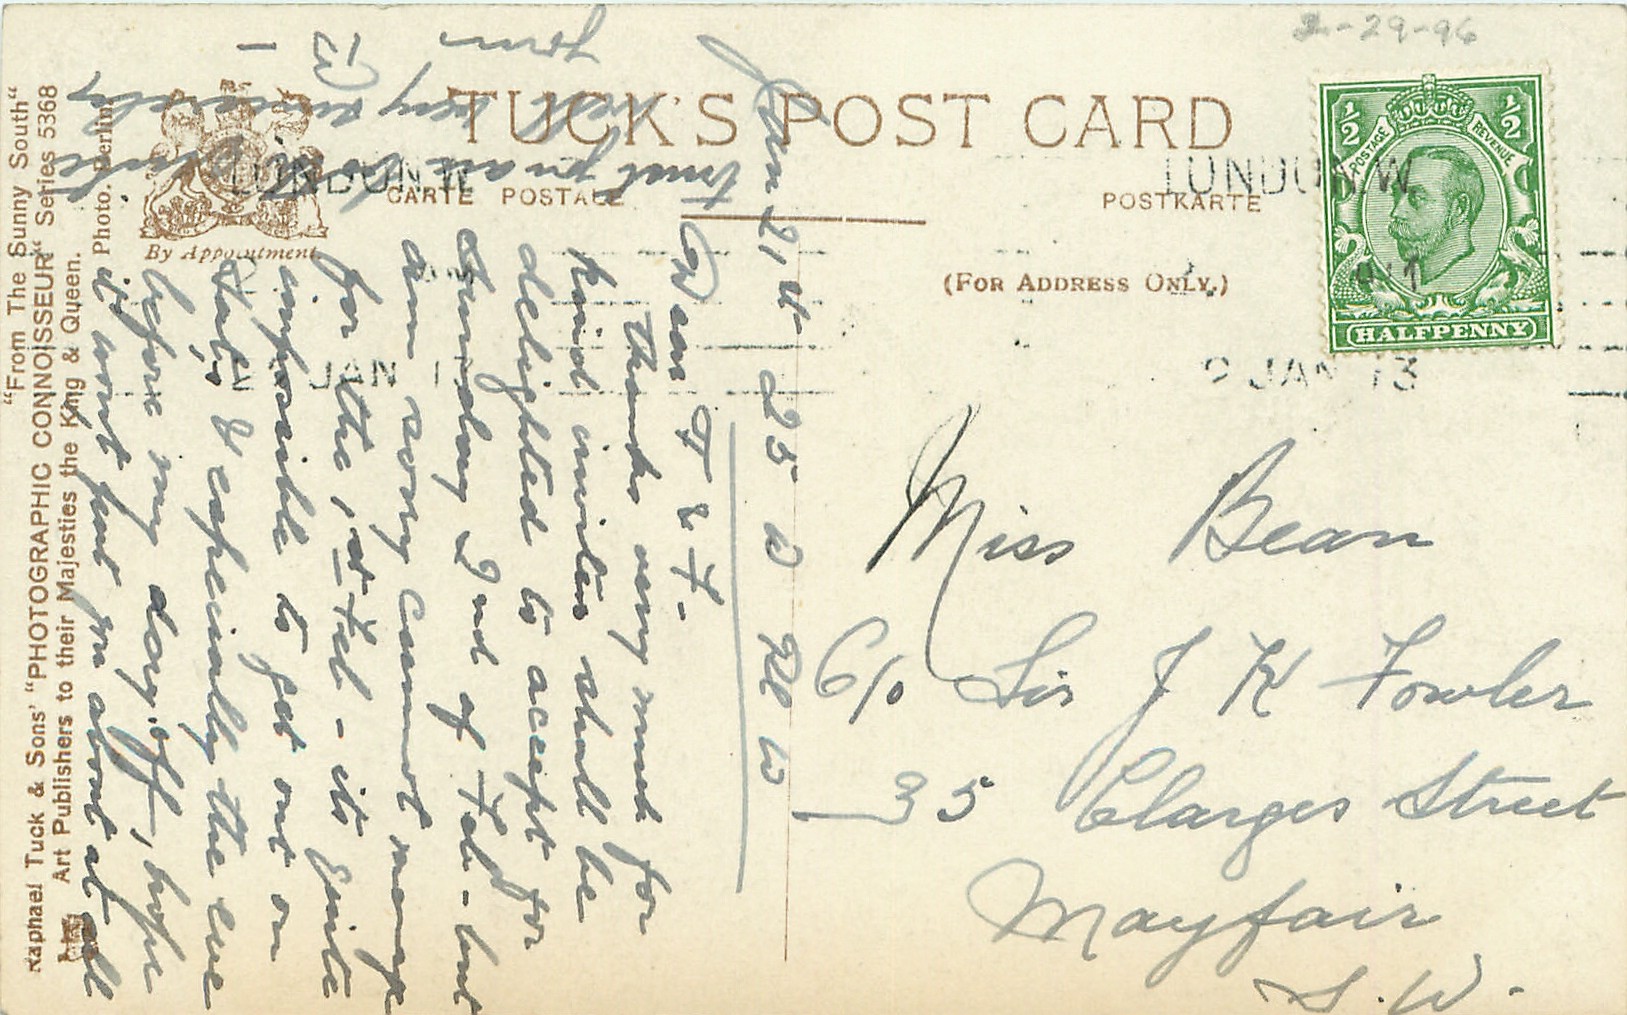 2-29-96
TUCK'S POST CARD
CARTE POSTALE
POSTKARTE
By Appointment.
(FOR ADDRESS ONLY.)
½ ½
POSTAGE REVENUE
HALFPENNY
LONDON.W
JAN 13
LONDON.W
JAN 13
"From The Sunny South"
Raphael Tuck & Sons' "PHOTOGRAPHIC CONNOISSEUR" Series 5368
Art Publishers to their Majesties the King & Queen.
Photo. Berlin
Miss Bean
C/o Sir J K Fowler
35 Clarges Street
Mayfair
S.W.
Jan 21st 25 W
Dear F & F -
Thanks very much for
kind invites shall be
delighted to accept for
Sunday 2nd of Feb - but
am sorry cannot manage
for the 1st Feb - its quite
impossible to get out on
Sat's & especially the eve
before my day off, hope
it wont put you about at all
trust you are both quite
well very sincerely
yours
W